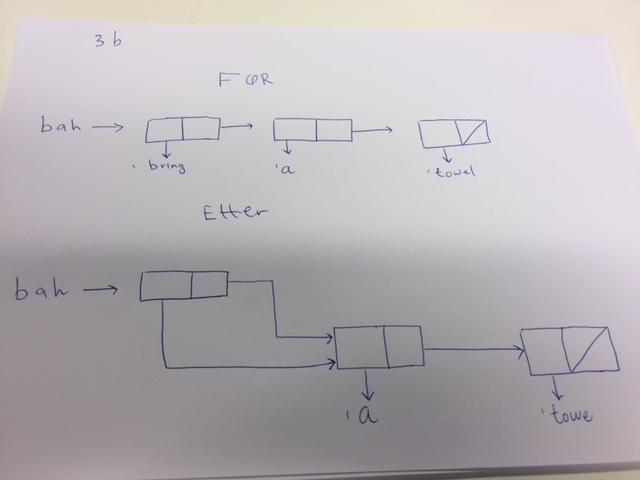 3b
FØR
bah
'bring 'a 'towel
Etter
bah
'a 'towe